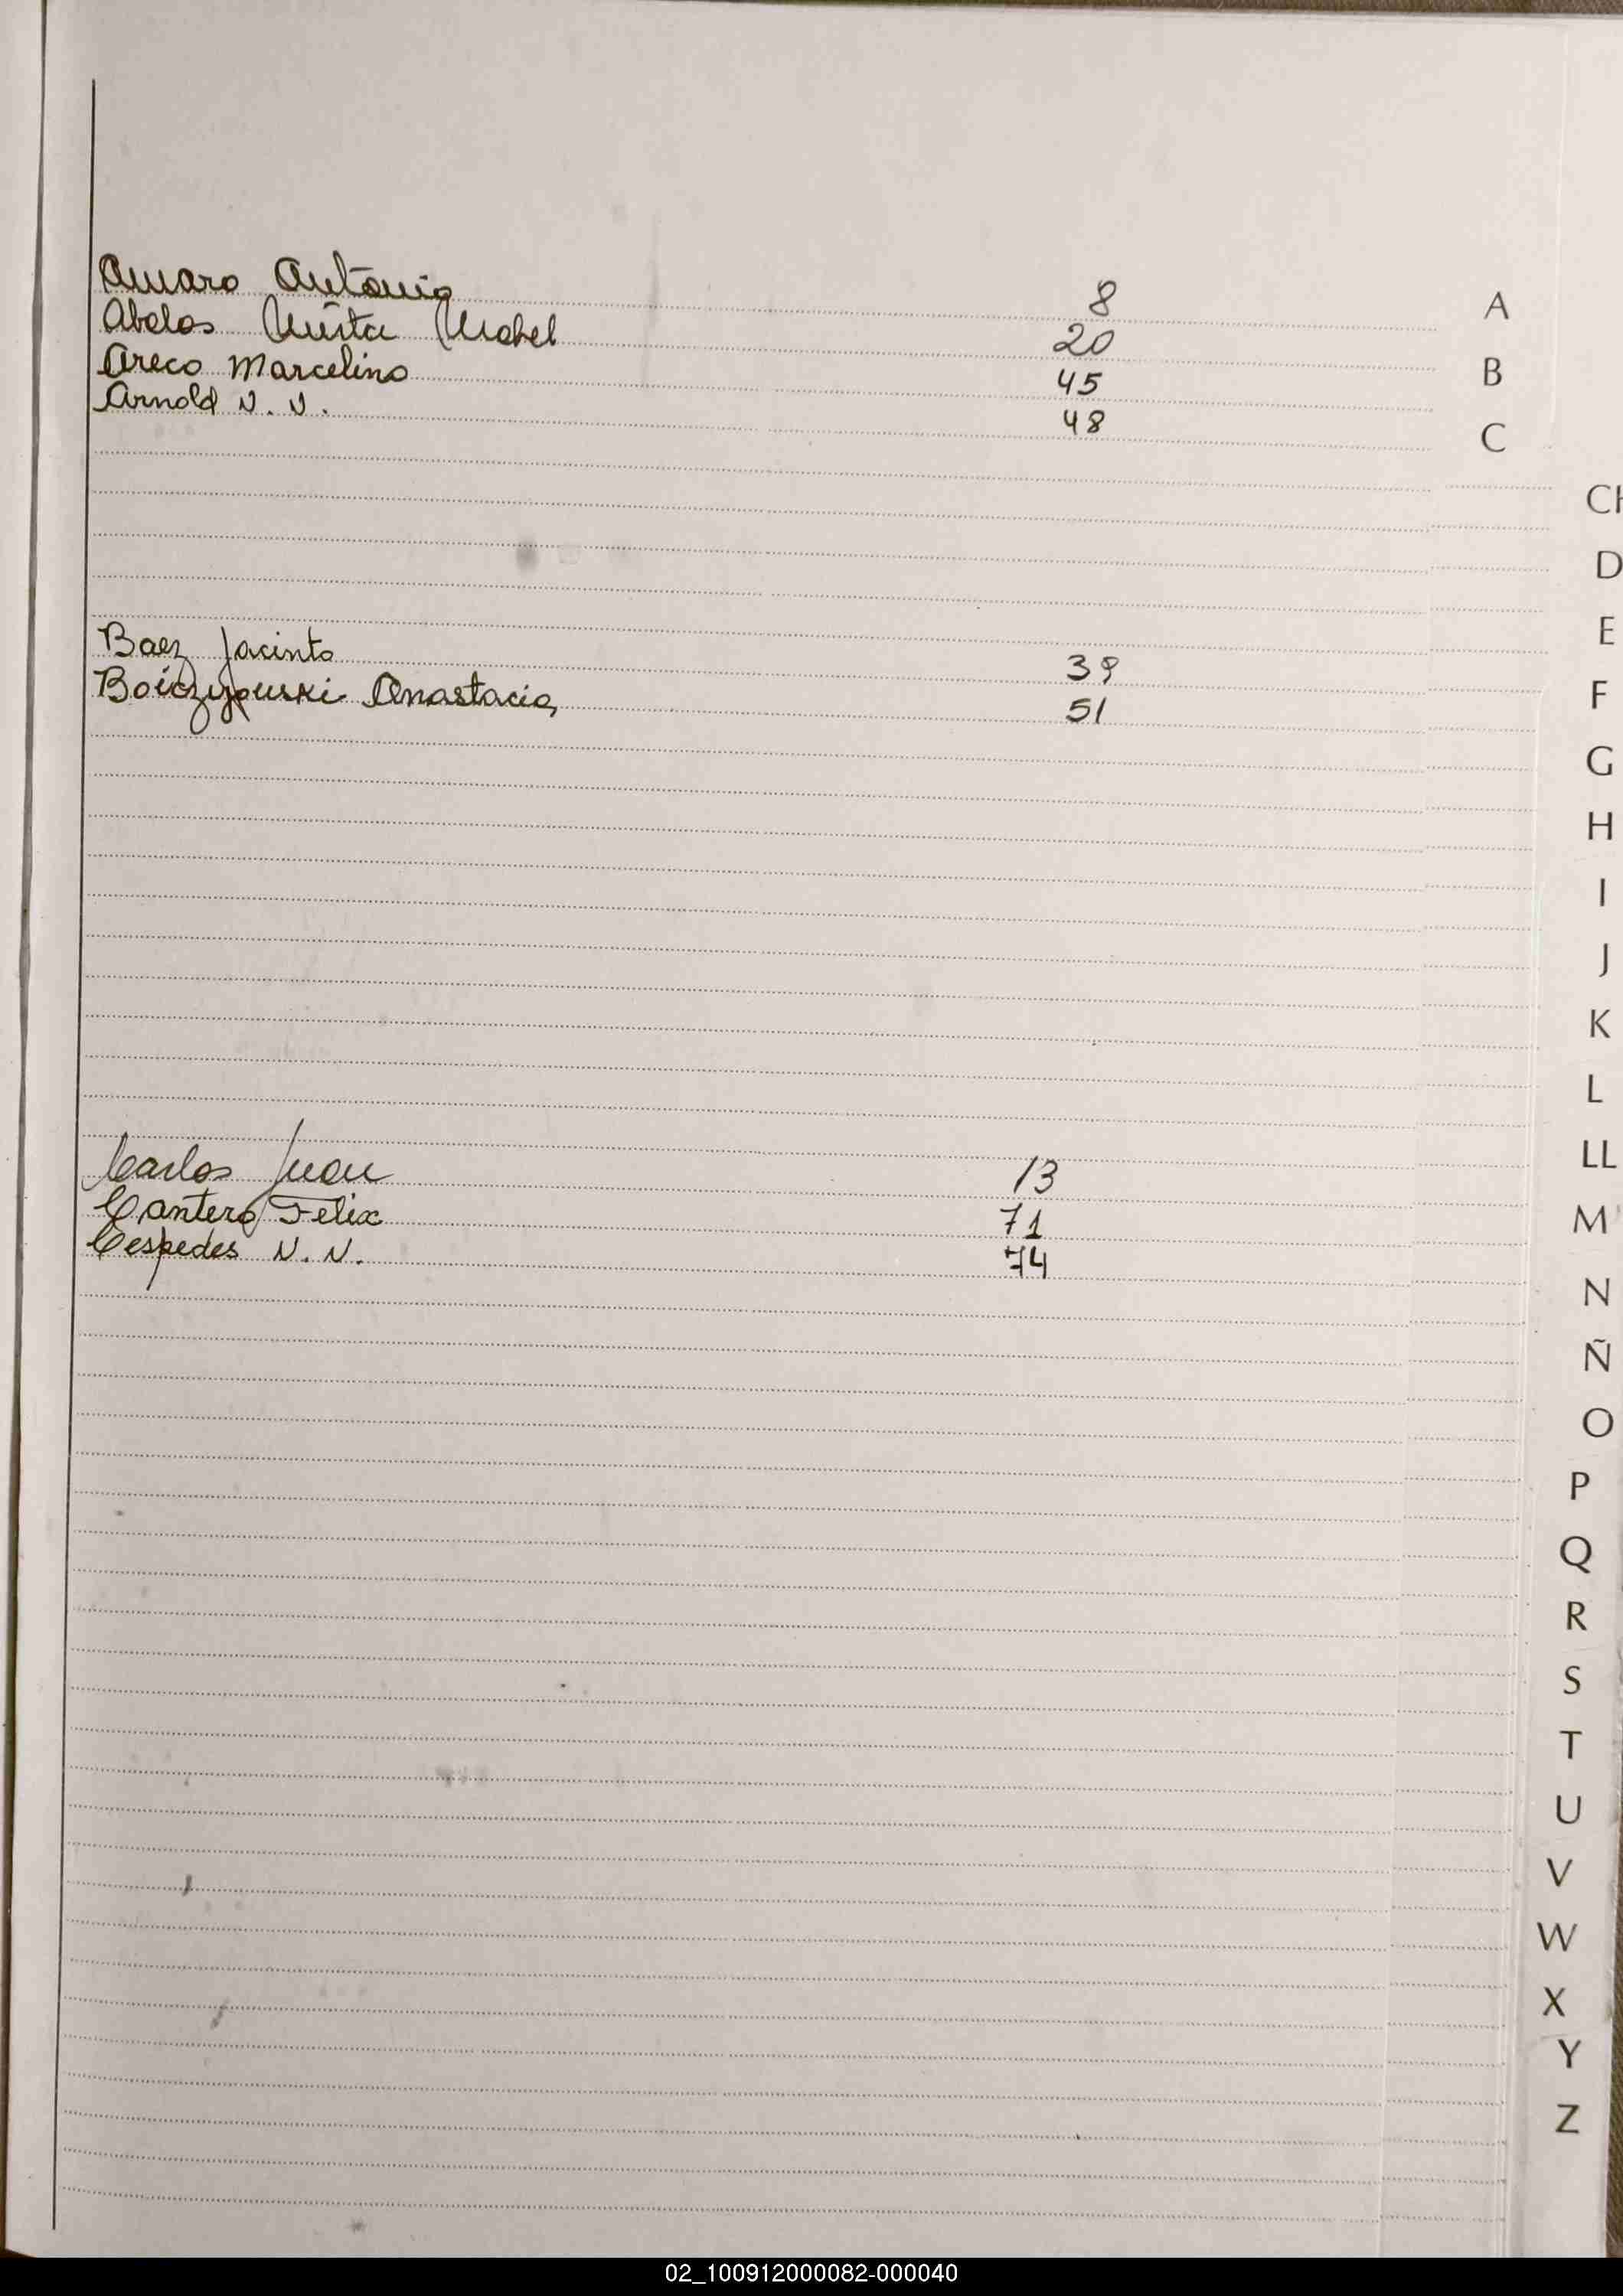 Amaro Antonio 8
Abelos Mirta Mabel 20
Areco Marcelino 45
Arnold N. N. 48
Baez Jacinto 39
Anastacia 51
Carlos Juan 13
Cantero Felix 71
Cespedes N. N. 74
A
B
C
CH
D
E
F
G
H
I
J
K
L
LL
M
N
Ñ
O
P
Q
R
S
T
U
V
W
X
Y
Z
02_100912000082-000040